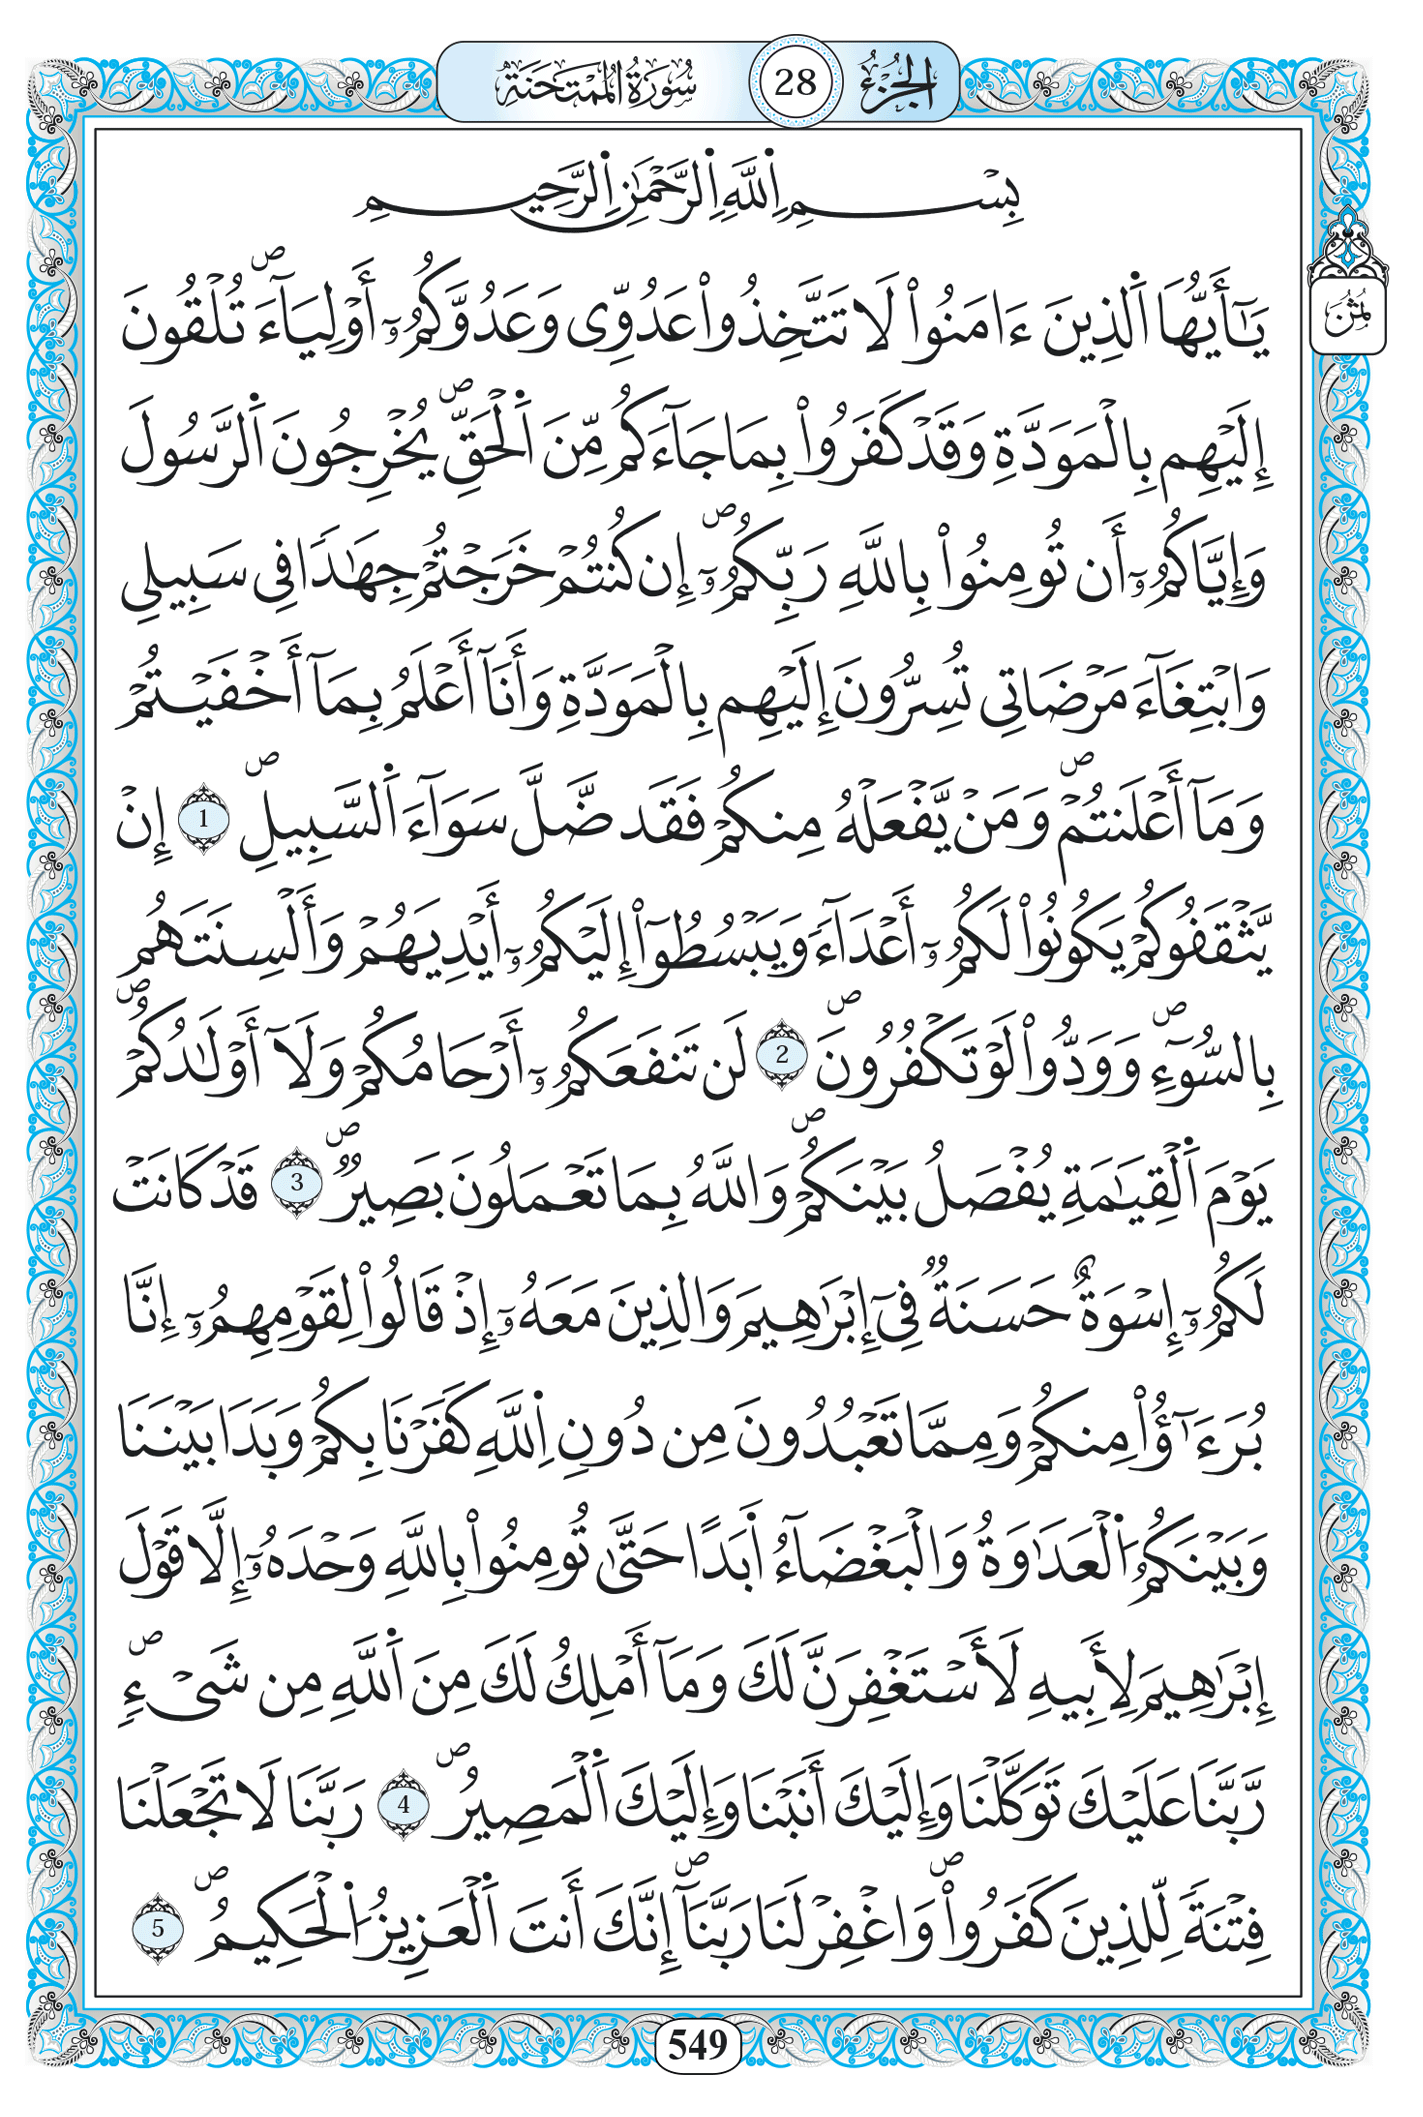 الجزء 28 سورة الممتحنة
بِسْمِ اِ۬للَّهِ اِ۬لرَّحْمَٰنِ اِ۬لرَّحِيمِ
ثمن
يَٰٓأَيُّهَا اَ۬لذِينَ ءَامَنُواْ لَا تَتَّخِذُواْ عَدُوِّى وَعَدُوَّكُمُۥٓ أَوْلِيَآءَۖ تُلْقُونَ
إِلَيْهِم بِالْمَوَدَّةِ وَقَدْ كَفَرُواْ بِمَا جَآءَكُم مِّنَ اَ۬لْحَقِّۖ يُخْرِجُونَ اَ۬لرَّسُولَ
وَإِيَّاكُمُۥٓ أَن تُومِنُواْ بِاللَّهِ رَبِّكُمُۥٓۖ إِن كُنتُمْ خَرَجْتُمْ جِهَٰدًا فِى سَبِيلِى
وَابْتِغَآءَ مَرْضَاتِى تُسِرُّونَ إِلَيْهِم بِالْمَوَدَّةِ وَأَنَآ أَعْلَمُ بِمَآ أَخْفَيْتُمْ
وَمَآ أَعْلَنتُمْۖ وَمَنْ يَّفْعَلْهُ مِنكُمْ فَقَد ضَّلَّ سَوَآءَ اَ۬لسَّبِيلِۖ 1 إِنْ
يَّثْقَفُوكُمْ يَكُونُواْ لَكُمُۥٓ أَعْدَآءَ وَيَبْسُطُوٓاْ إِلَيْكُمُۥٓ أَيْدِيَهُمْ وَأَلْسِنَتَهُم
بِالسُّوٓءِۖ وَوَدُّواْ لَوْ تَكْفُرُونَۖ 2 لَن تَنفَعَكُمُۥٓ أَرْحَامُكُمْ وَلَآ أَوْلَٰدُكُمْۖ
يَوْمَ اَ۬لْقِيَٰمَةِ يُفْصَلُ بَيْنَكُمْۖ وَاللَّهُ بِمَا تَعْمَلُونَ بَصِيرٌۖ 3 قَدْ كَانَتْ
لَكُمُۥٓ إِسْوَةٌ حَسَنَةٌ فِىٓ إِبْرَٰهِيمَ وَالذِينَ مَعَهُۥٓ إِذْ قَالُواْ لِقَوْمِهِمُۥٓ إِنَّا
بُرَءَٰٓؤُاْ مِنكُمْ وَمِمَّا تَعْبُدُونَ مِن دُونِ اِ۬للَّهِ كَفَرْنَا بِكُمْ وَبَدَا بَيْنَنَا
وَبَيْنَكُمُ اُ۬لْعَدَٰوَةُ وَالْبَغْضَآءُ أَبَدًا حَتَّىٰ تُومِنُواْ بِاللَّهِ وَحْدَهُۥٓ إِلَّا قَوْلَ
إِبْرَٰهِيمَ لِأَبِيهِ لَأَسْتَغْفِرَنَّ لَكَ وَمَآ أَمْلِكُ لَكَ مِنَ اَ۬للَّهِ مِن شَىْءٍۖ
رَّبَّنَا عَلَيْكَ تَوَكَّلْنَا وَإِلَيْكَ أَنَبْنَا وَإِلَيْكَ اَ۬لْمَصِيرُۖ 4 رَبَّنَا لَا تَجْعَلْنَا
فِتْنَةً لِّلذِينَ كَفَرُواْۖ وَاغْفِرْ لَنَا رَبَّنَآۖ إِنَّكَ أَنتَ اَ۬لْعَزِيزُ اُ۬لْحَكِيمُۖ 5
549